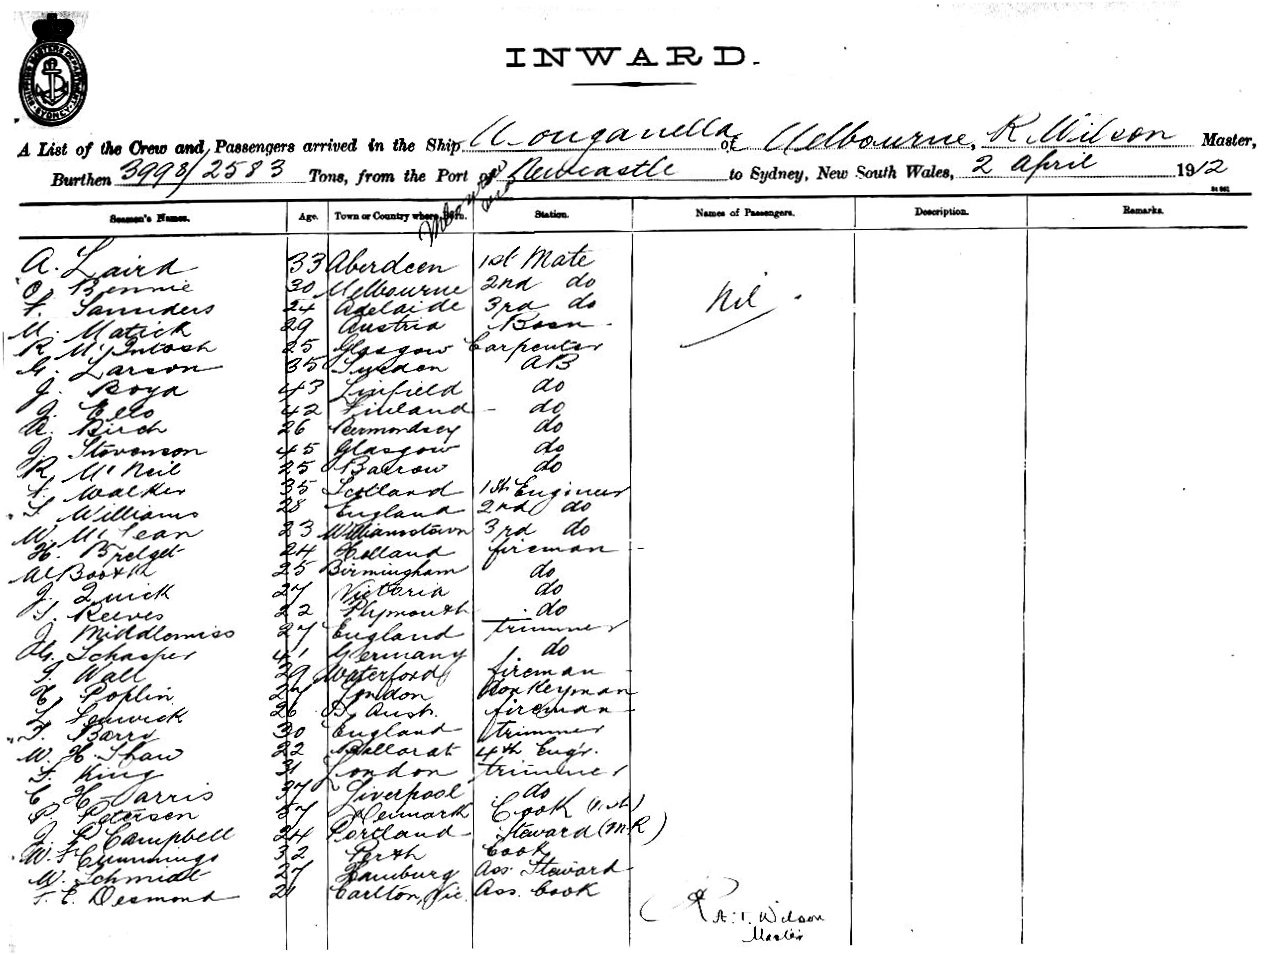 SHIPPING MASTERS DEPARTMENT SYDNEY
INWARD.
A List of the Crew and Passengers arrived in the Ship Wonganella of Melbourne, R Wilson Master,
Burthen 3998/2583 Tons, from the Port of Newcastle to Sydney, New South Wales, 2 April 1912
Seamen's Names. Age. Town or Country where Born. Station. Names of Passengers. Description. Remarks.
A. Laird 33 Aberdeen 1st Mate
O. Bennie 30 Melbourne 2nd do Nil.
F. Saunders 24 Adelaide 3rd do
M. Matick 29 Austria Bosn
R McIntosh 25 Glasgow Carpenter
G. Larson 35 Sweden AB
J. Boyd 43 Linfield do
J. Ello 42 Finland - do
A. Birch 26 Bermondsey do
J. Stevenson 45 Glasgow do
R McNeil 25 Barrow do
F. Walker 35 Scotland 1st Engineer
S. Williams 28 England 2nd do
W. McLean 23 Williamstown 3rd do
H. Bredget 24 Holland fireman
W Booth 25 Birmingham do
J. Quick 27 Victoria do
S. Reeves 22 Plymouth do
J. Middlemiss 27 England trimmer
G. Schasper 41 Germany do
T. Wall 29 Waterford fireman
E. Poplin 27 London Donkeyman
L. Fenwick 26 S. Aust. fireman
T. Barry 30 England trimmer
W. H. Shaw 22 Ballarat 4th Engr.
F. King 31 London trimmer
C H Harris 37 Liverpool do
P. Petersen 57 Denmark Cook (1st)
J. P. Campbell 24 Portland Steward (MR)
W. F. Cummings 32 Perth Cook
W. Schmidt 27 Hamburg Ass. Steward
F. E. Desmond 21 Carlton, Vic Ass. Cook
R. A. T. Wilson
Master